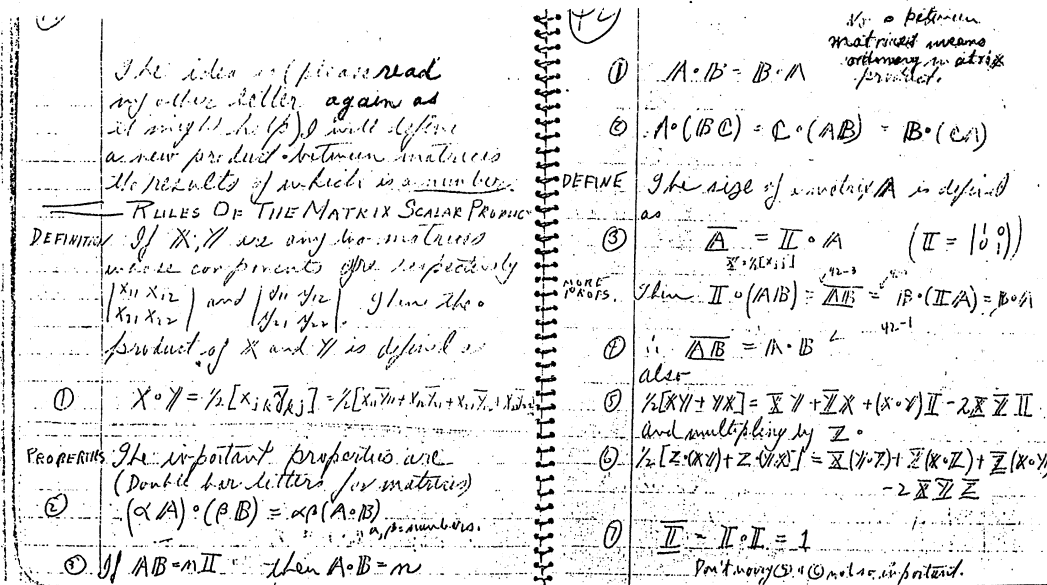 The idea is (please read
my other letter again as
it might help) I will define
a new product • between matrices
the results of which is a number.
RULES OF THE MATRIX SCALAR PRODUCT
DEFINITION If 𝕏, 𝕐 are any two matrices
whose components are respectively
|x₁₁ x₁₂| and |y₁₁ y₁₂|. Then the •
|x₂₁ x₂₂| |y₂₁ y₂₂|
product of 𝕏 and 𝕐 is defined as
① 𝕏∘𝕐 = ½[
PROPERTIES The important properties are
(Double bar letters for matrices)
② (α𝔸)∘(β𝔹) = αβ(𝔸∘𝔹)
α, β = numbers.
③ If 𝔸𝔹 = n𝕀 then 𝔸∘𝔹 = n
42
No • between
matrices means
ordinary matrix
product.
① 𝔸∘𝔹 = 𝔹∘𝔸
② 𝔸∘(𝔹ℂ) = ℂ∘(𝔸𝔹) = 𝔹∘(ℂ𝔸)
DEFINE The size of a matrix 𝔸 is defined
as
③ 𝔸̅ = 𝕀∘𝔸 (𝕀 = |1 0|)
|0 1|
MORE
PROPS. Then 𝕀∘(𝔸𝔹) = 𝔸𝔹̅ = 𝔹∘(𝕀𝔸) = 𝔹∘𝔸
42-3
42-1
④ ∴ 𝔸𝔹̅ = 𝔸∘𝔹
also
⑤ ½[𝕏𝕐 ± 𝕐𝕏] = 𝕏̅ 𝕐 + 𝕐̅ 𝕏 + (𝕏∘𝕐)𝕀 - 2𝕏̅ 𝕐̅ 𝕀
and multiplying by ℤ∘
⑥ ½[ℤ∘(𝕏𝕐) + ℤ∘(𝕐𝕏)] = 𝕏̅(𝕐∘ℤ) + 𝕐̅(𝕏∘ℤ) + ℤ̅(𝕏∘𝕐)
- 2𝕏̅ 𝕐̅ ℤ̅
⑦ 𝕀̅ = 𝕀∘𝕀 = 1
Don't worry (5) & (6) not so important.